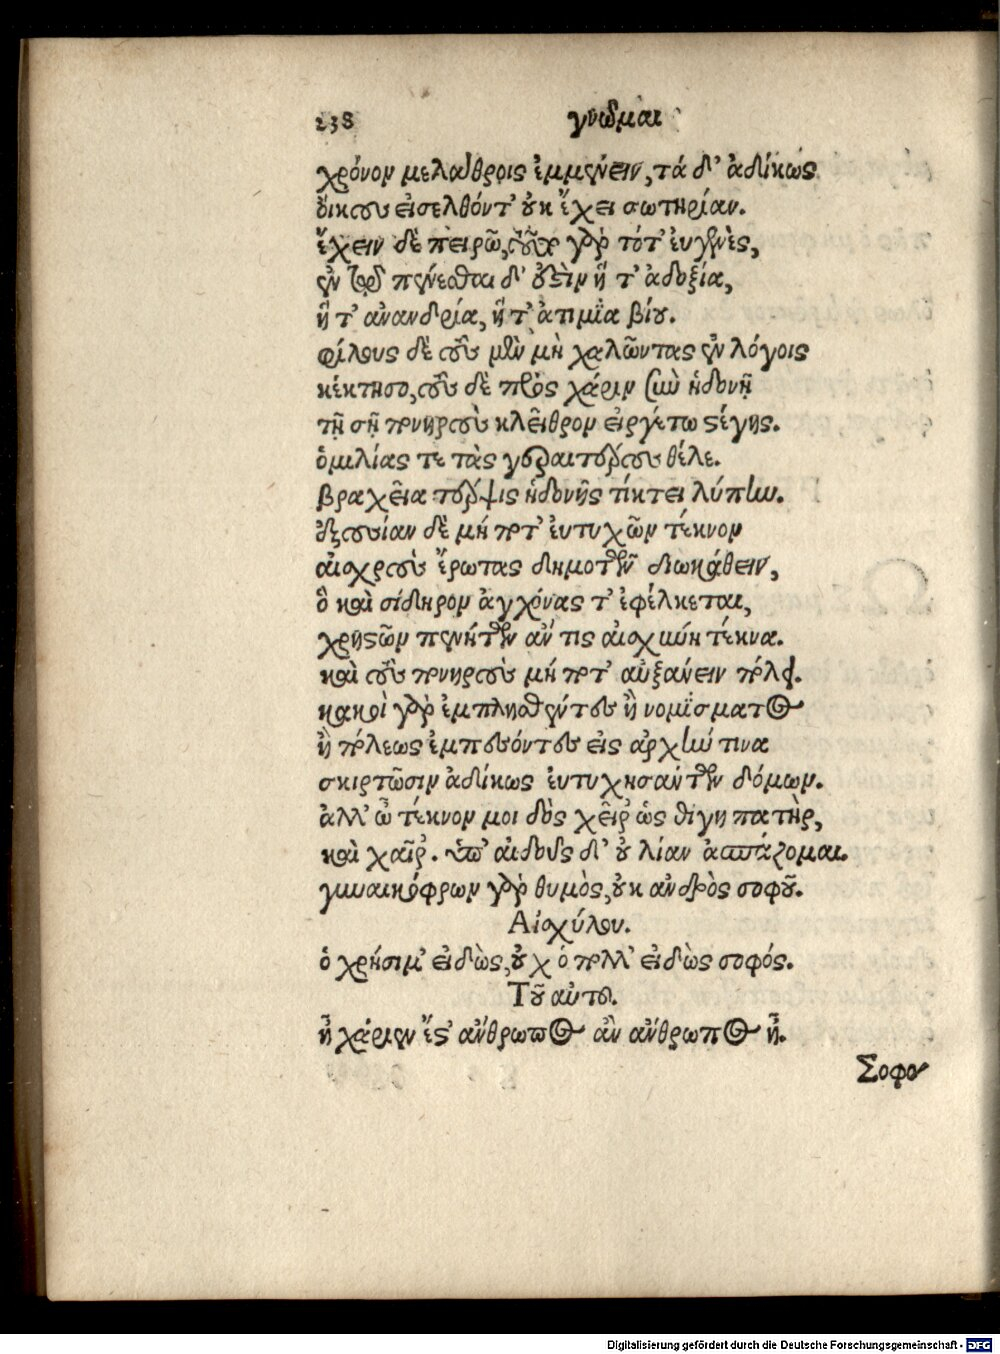 238 γνῶμαι
χρόνον μελάθροις ἐμμένειν, τὰ δ' ἀδίκως
οἴκους εἰσελθόντ' οὐκ ἔχει σωτηρίαν.
ἔχειν δὲ πειρῶ, τοῦτο γὰρ τό τ' εὐγενὲς,
ἐν τῷ πένεσθαι δ' ἐστὶν ἥ τ' ἀδοξία,
ἥ τ' ἀνανδρία, ἥ τ' ἀτιμία βίου.
φίλους δὲ τοὺς μὲν μὴ χαλῶντας ἐν λόγοις
κέκτησο, τοὺς δὲ πρὸς χάριν σὺν ἡδονῇ
τῇ σῇ πονηροὺς κλεῖθρον εἰργέτω στέγης.
ὁμιλίας τε τὰς γεραιτέρους θέλε.
βραχεῖα τέρψις ἡδονῆς τίκτει λύπην.
ἐξουσίαν δὲ μή ποτ' εὐτυχῶν τέκνον
αἰσχροὺς ἔρωτας δημοτῶν διωκάθειν,
ὃ καὶ σίδηρον ἀγχόνας τ' ἐφέλκεται,
χρηστῶν πενήτων ἄν τις αἰσχύνῃ τέκνα.
καὶ τοὺς πονηροὺς μή ποτ' αὐξάνειν πόλει.
κακοὶ γὰρ ἐμπλησθέντες ἢ νομίσματος
ἢ πόλεως ἐμπεσόντες εἰς ἀρχήν τινα
σκιρτῶσιν ἀδίκως εὐτυχησάντων δόμων.
ἀλλ' ὦ τέκνον μοι δὸς χεῖρ ὡς θίγῃ πατὴρ,
καὶ χαῖρ. ὑπ' αἰδοῦς δ' οὐ λίαν ἀσπάζομαι.
γυναικόφρων γὰρ θυμὸς, οὐκ ἀνδρὸς σοφοῦ.
Αἰσχύλου.
ὁ χρήσιμ' εἰδὼς, οὐχ ὁ πόλλ' εἰδὼς σοφός.
Τοῦ αὐτοῦ.
ᾗ χάριεν ἔστ' ἄνθρωπος ἂν ἄνθρωπος ᾖ.
Σοφο